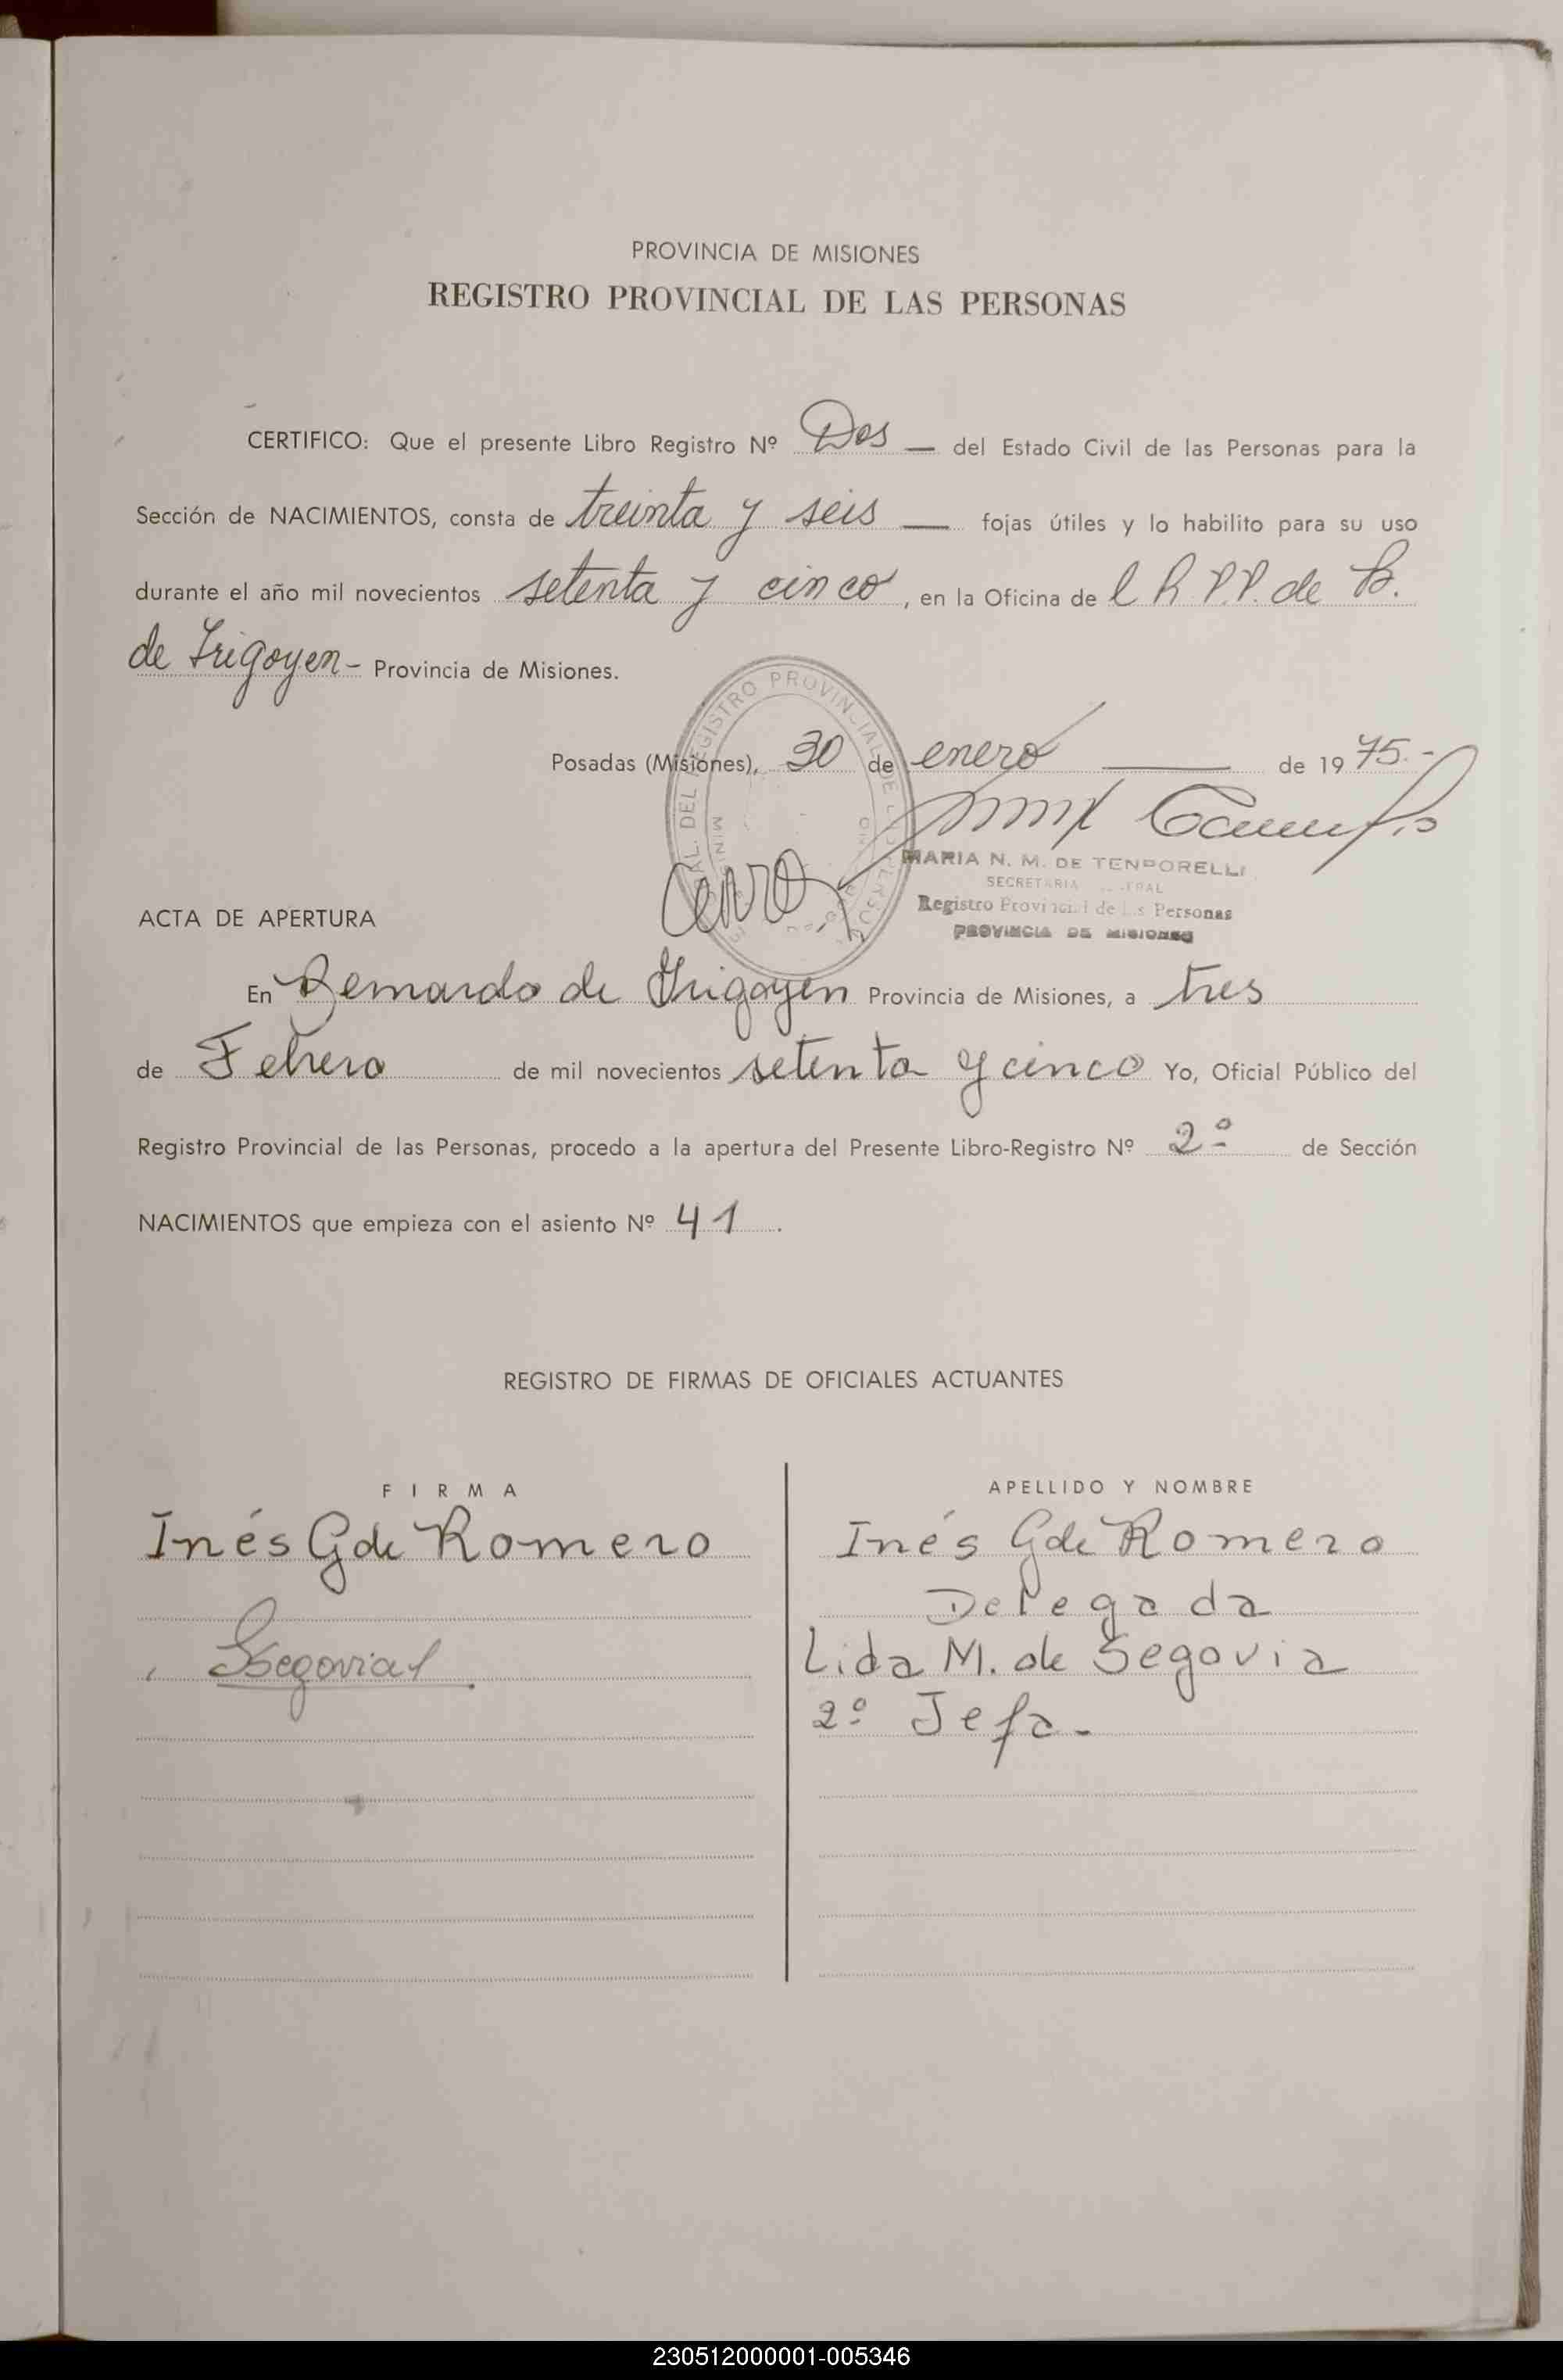 PROVINCIA DE MISIONES
REGISTRO PROVINCIAL DE LAS PERSONAS
CERTIFICO: Que el presente Libro Registro Nº Dos — del Estado Civil de las Personas para la
Sección de NACIMIENTOS, consta de treinta y seis — fojas útiles y lo habilito para su uso
durante el año mil novecientos setenta y cinco, en la Oficina de l R.P.P. de B.
de Irigoyen - Provincia de Misiones.
Posadas (Misiones), 30 de enero — de 1975.-
MARIA N. M. DE TEMPORELLI
SECRETARIA
Registro Provincial de las Personas
PROVINCIA DE MISIONES
ACTA DE APERTURA
En Bernardo de Irigoyen Provincia de Misiones, a tres
de Febrero de mil novecientos setenta y cinco Yo, Oficial Público del
Registro Provincial de las Personas, procedo a la apertura del Presente Libro-Registro Nº 2º de Sección
NACIMIENTOS que empieza con el asiento Nº 41.
REGISTRO DE FIRMAS DE OFICIALES ACTUANTES
FIRMA
APELLIDO Y NOMBRE
Inés G de Romero
Inés G de Romero
Delegada
Segovia
Lida M. de Segovia
2º Jefa.
230512000001-005346